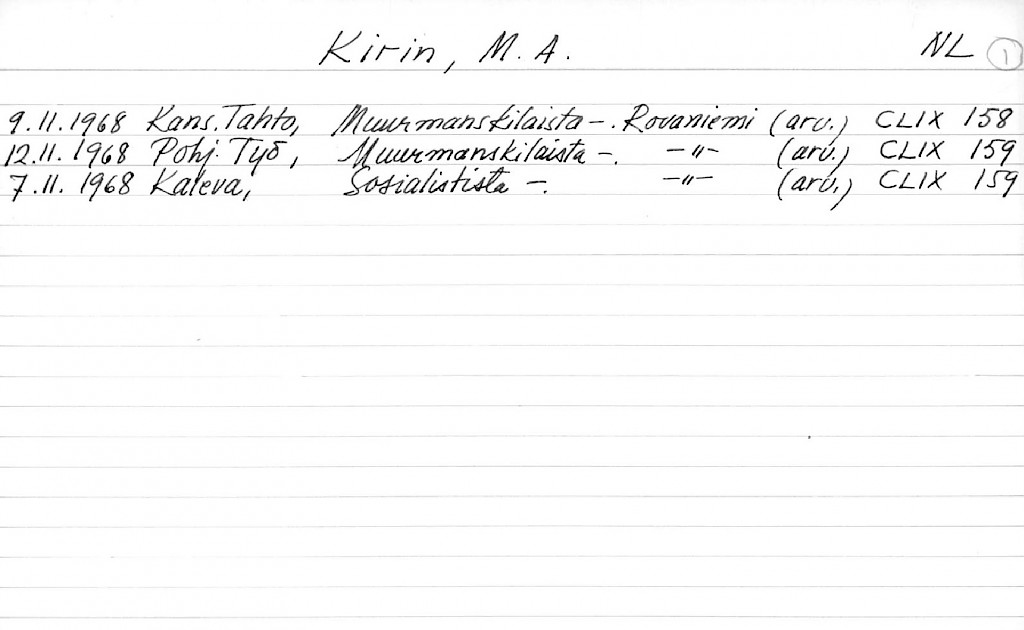 Kirin, M. A. NL 1
9.11.1968 Kans. Tahto, Muurmanskilaista -. Rovaniemi (arv.) CLIX 158
12.11.1968 Pohj. Työ, Muurmanskilaista -. -"- (arv.) CLIX 159
7.11.1968 Kaleva, Sosialistista -. -"- (arv.) CLIX 159